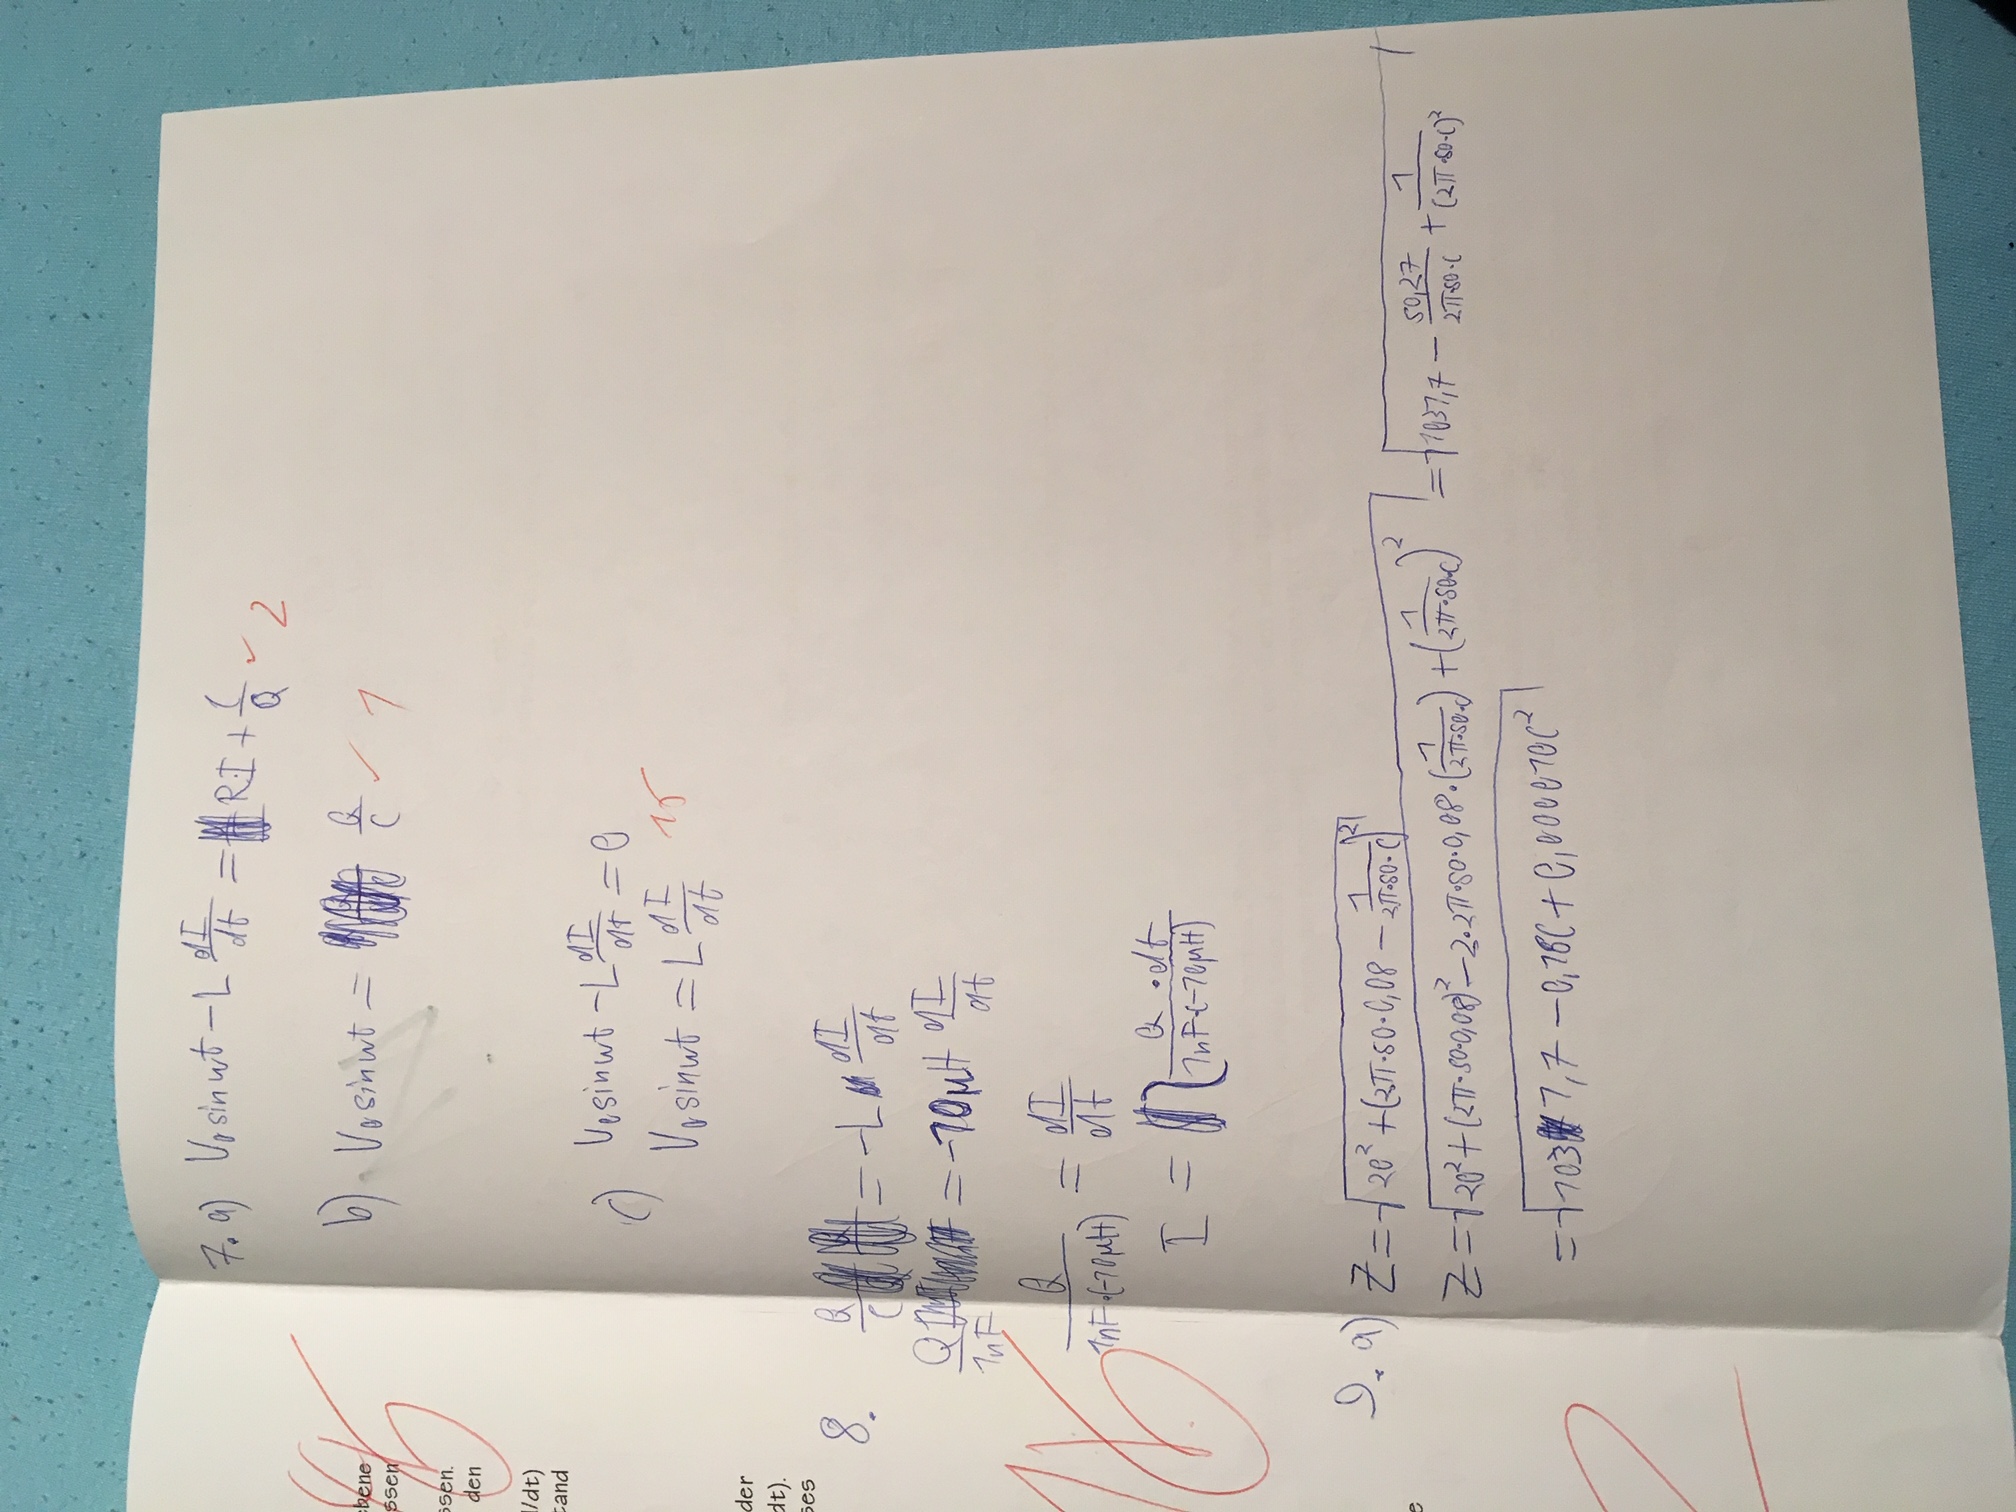 ebene
ssen
ssen.
den
l/dt)
tand
der
dt).
ses
e
7. a) V₀ sin ωt − L dI/dt = RI + C/Q ✓ 2
b) V₀ sin ωt = Q/C ✓ 1
c) V₀ sin ωt − L dI/dt = 0
V₀ sin ωt = L dI/dt 15
8. Q/C = −L dI/dt
Q/1nF = −10μH dI/dt
Q/1nF·(−10μH) = dI/dt
I = ∫ Q·dt/1nF·(−10μH)
9. a) Z = √20² + (2π·50·0,08 − 1/2π·50·C)²
Z = √20² + (2π·50·0,08)² − 2·2π·50·0,08·(1/2π·50·C) + (1/2π·50·C)² = √1031,7 − 50,27/2π·50·C + 1/(2π·50·C)²
= √1031,7 − 0,16C + 0,000010C²